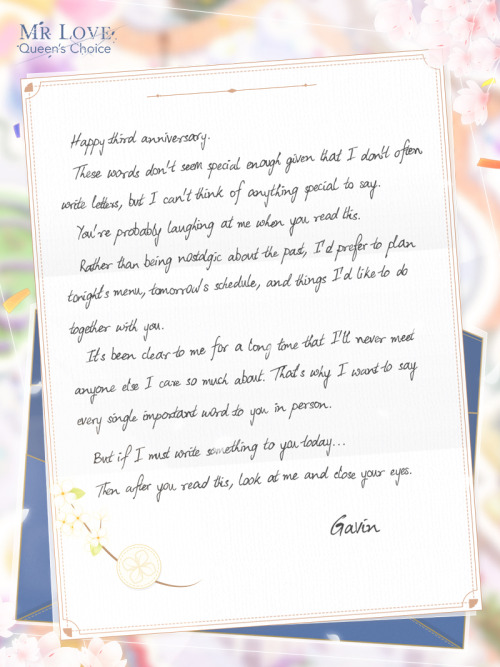 MR LOVE
Queen's Choice
Happy third anniversary.
These words don't seem special enough given that I don't often
write letters, but I can't think of anything special to say.
You're probably laughing at me when you read this.
Rather than being nostalgic about the past, I'd prefer to plan
tonight's menu, tomorrow's schedule, and things I'd like to do
together with you.
It's been clear to me for a long time that I'll never meet
anyone else I care so much about. That's why I want to say
every single important word to you in person.
But if I must write something to you today...
Then after you read this, look at me and close your eyes.
Gavin